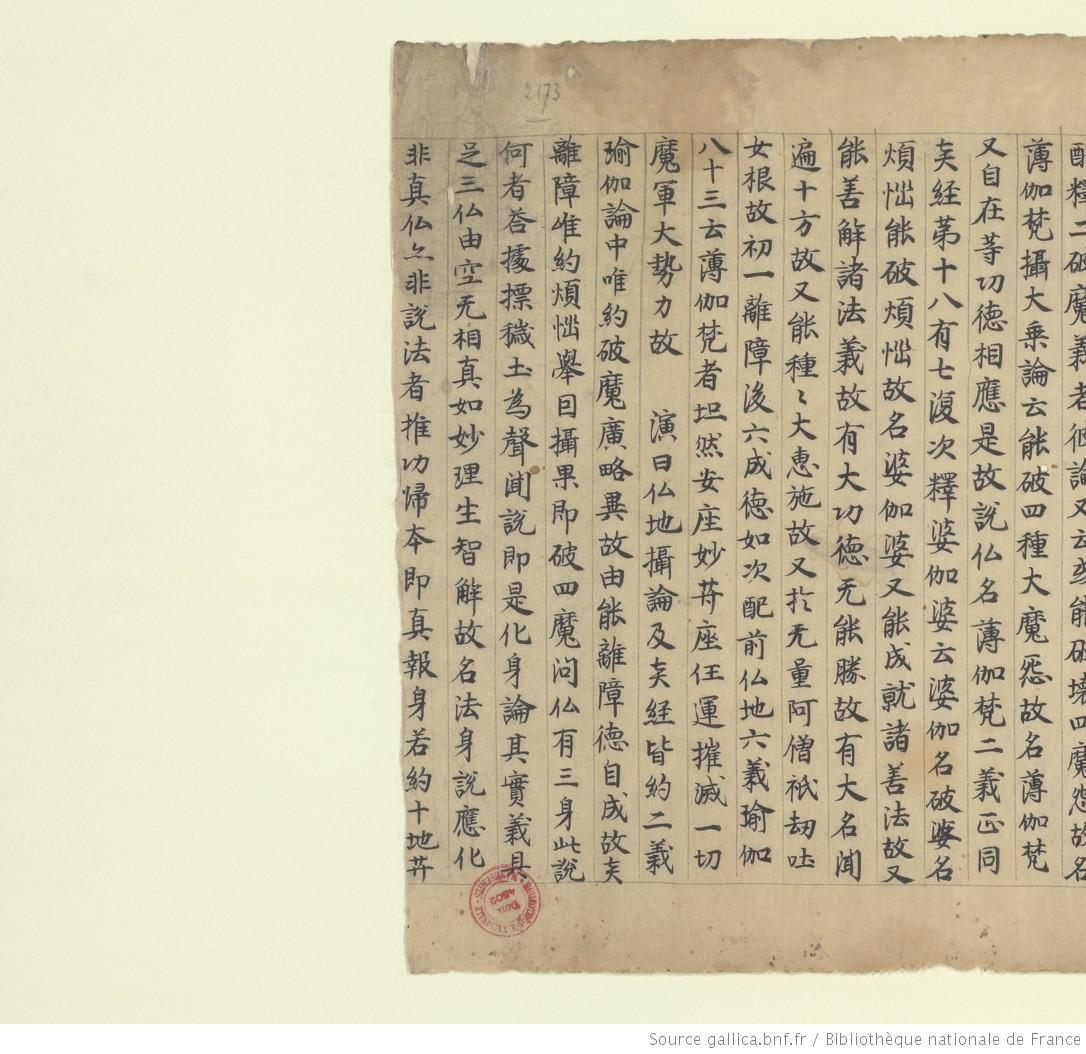 醉釋二破魔義者彼論又云是能破壞四魔怨故名
薄伽梵攝大乘論云能破四種大魔怨故名薄伽梵
又自在等功德相應是故說仏名薄伽梵二義正同
矣經苐十八有七復次釋婆伽婆云婆伽名破婆名
煩惱能破煩惱故名婆伽婆又能成就諸善法故又
能善解諸法義故有大功德无能勝故有大名聞
遍十方故又能種〻大惠施故又扵无量阿僧祇劫吐
女根故初一離障後六成德如次配前仏地六義瑜伽
八十三云薄伽梵者坦然安座妙菩座任運摧滅一切
魔軍大勢力故　演曰仏地攝論及矣經皆約二義
瑜伽論中唯約破魔廣略異故由能離障德自成故矣
離障唯約煩惱舉因攝果即破四魔問仏有三身此說
何者荅據摽穢土為聲聞說即是化身論其實義具
足三仏由空无相真如妙理生智解故名法身說應化
非真仏亦非說法者推功歸本即真報身若約十地菩
2173
Source gallica.bnf.fr / Bibliothèque nationale de France